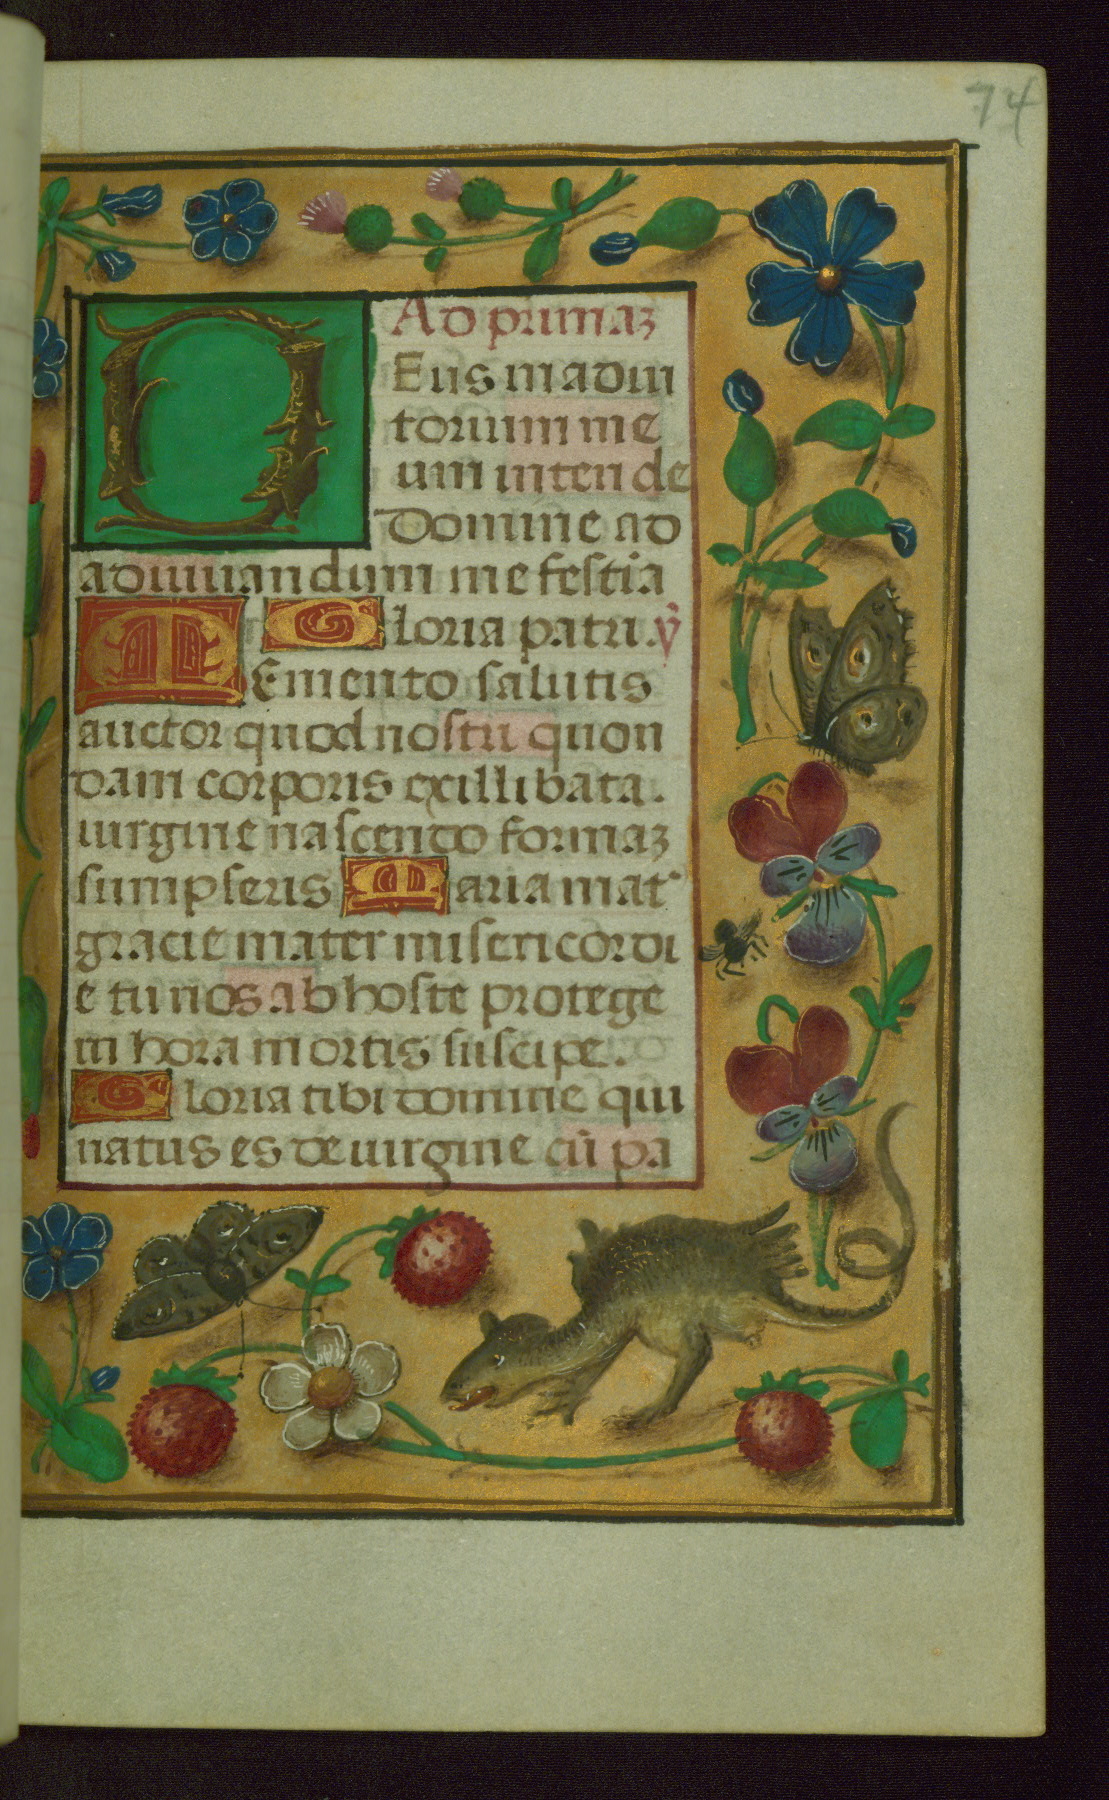 74
Ad primaz
DEus in adiu
torium me
um intende
Domine ad
adiuuandum me festiā
Gloria patri. ỹ
Memento salutis
auctor quod nostri quon
dam corporis exillibata.
uirgine nascendo formaz
sumpseris Maria mat᷒
gracie mater misericordi
e tu nos ab hoste protege
in hora mortis suscipe.
Gloria tibi domine qui
natus es de uirgine cū pa